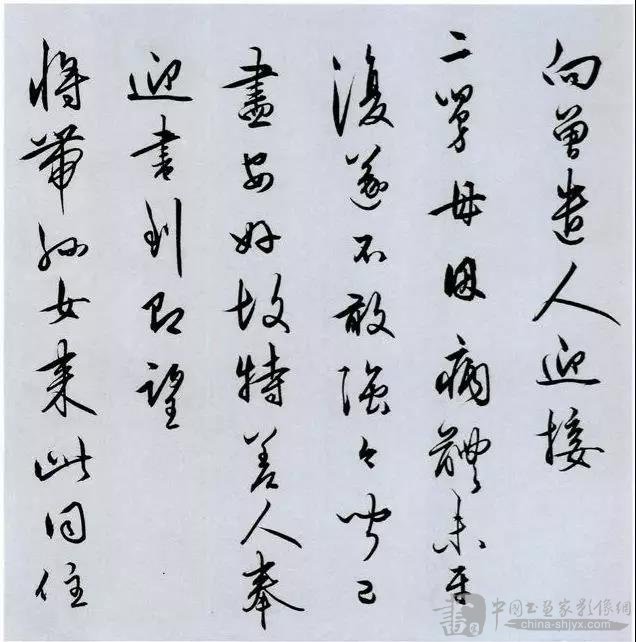 向曾遣人迎接
二舅母因病體未平
復遂不敢強今聞已
盡安好故特差人奉
迎書到即望
將帶孫女來此同住
中國书画家影像網
china-shjyx.com